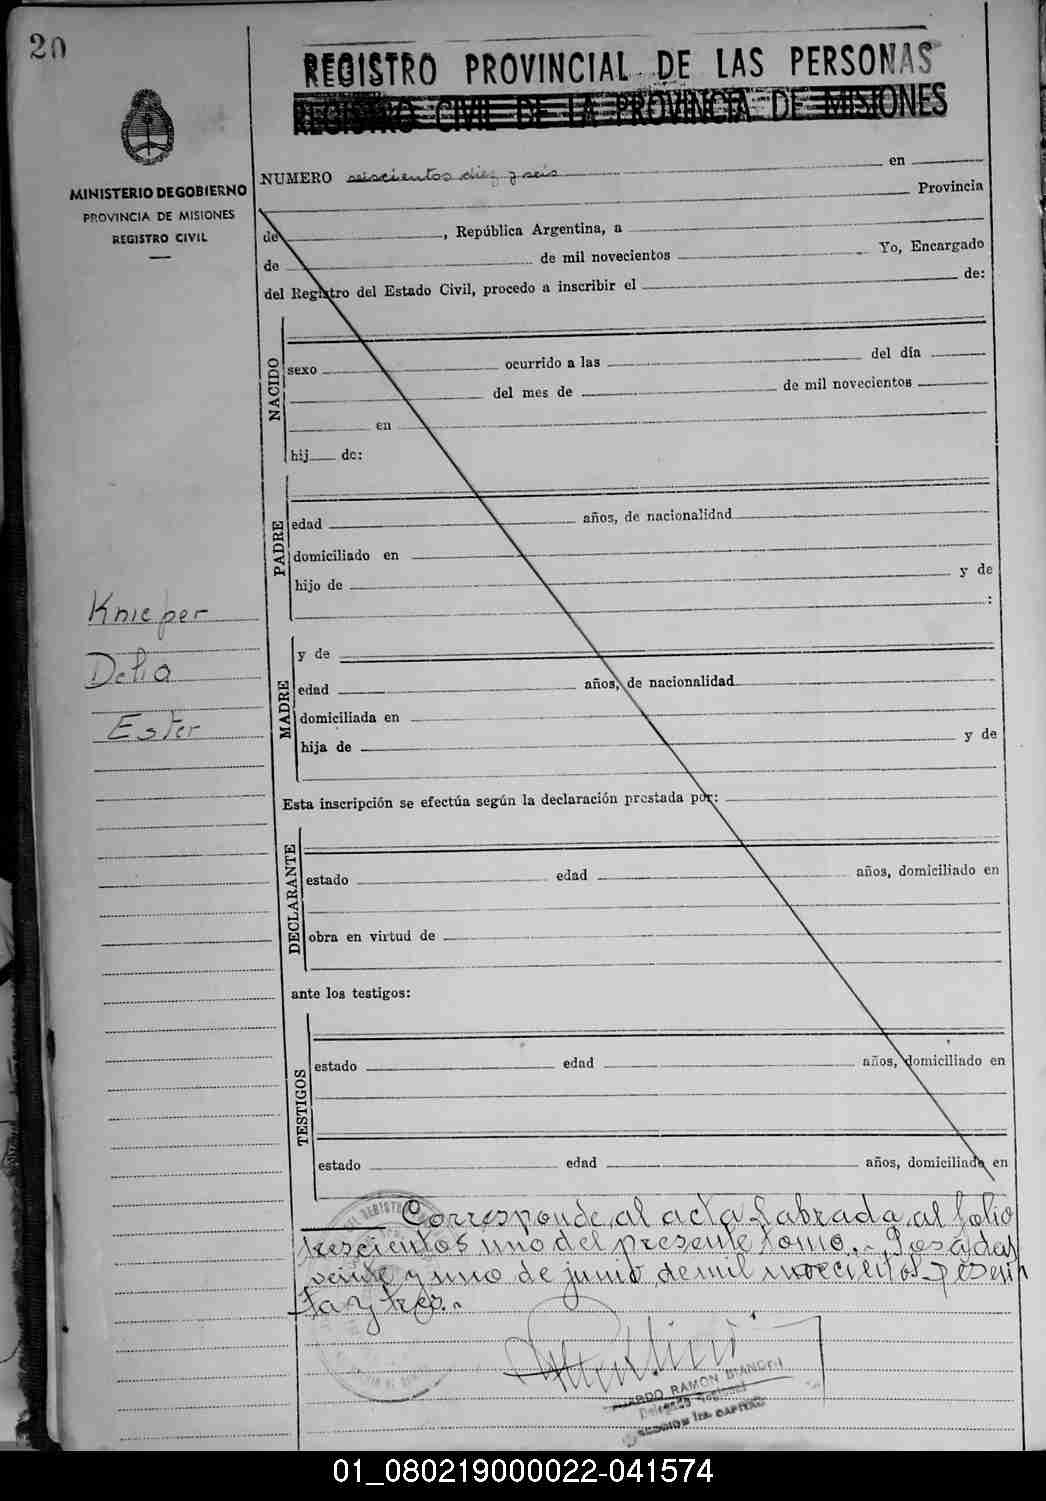 20
REGISTRO PROVINCIAL DE LAS PERSONAS
REGISTRO CIVIL DE LA PROVINCIA DE MISIONES
MINISTERIO DE GOBIERNO
PROVINCIA DE MISIONES
REGISTRO CIVIL
NUMERO seiscientos diez y seis en
Provincia
de , República Argentina, a
de de mil novecientos Yo, Encargado
del Registro del Estado Civil, procedo a inscribir el de:
NACIDO
sexo ocurrido a las del día
del mes de de mil novecientos
en
hij de:
PADRE
edad años, de nacionalidad
domiciliado en
hijo de y de
:
Knieper
Delia
Ester
MADRE
y de
edad años, de nacionalidad
domiciliada en
hija de y de
Esta inscripción se efectúa según la declaración prestada por:
DECLARANTE
estado edad años, domiciliado en
obra en virtud de
ante los testigos:
TESTIGOS
estado edad años, domiciliado en
estado edad años, domiciliado en
Corresponde al acta labrada al folio
trescientos uno del presente tomo.- Posadas
veinte y uno de junio de mil novecientos sesen
ta y tres.
RAMON BIANCHI
Delegado Regional
SECCION 1ra. CAPITAL
01_080219000022-041574